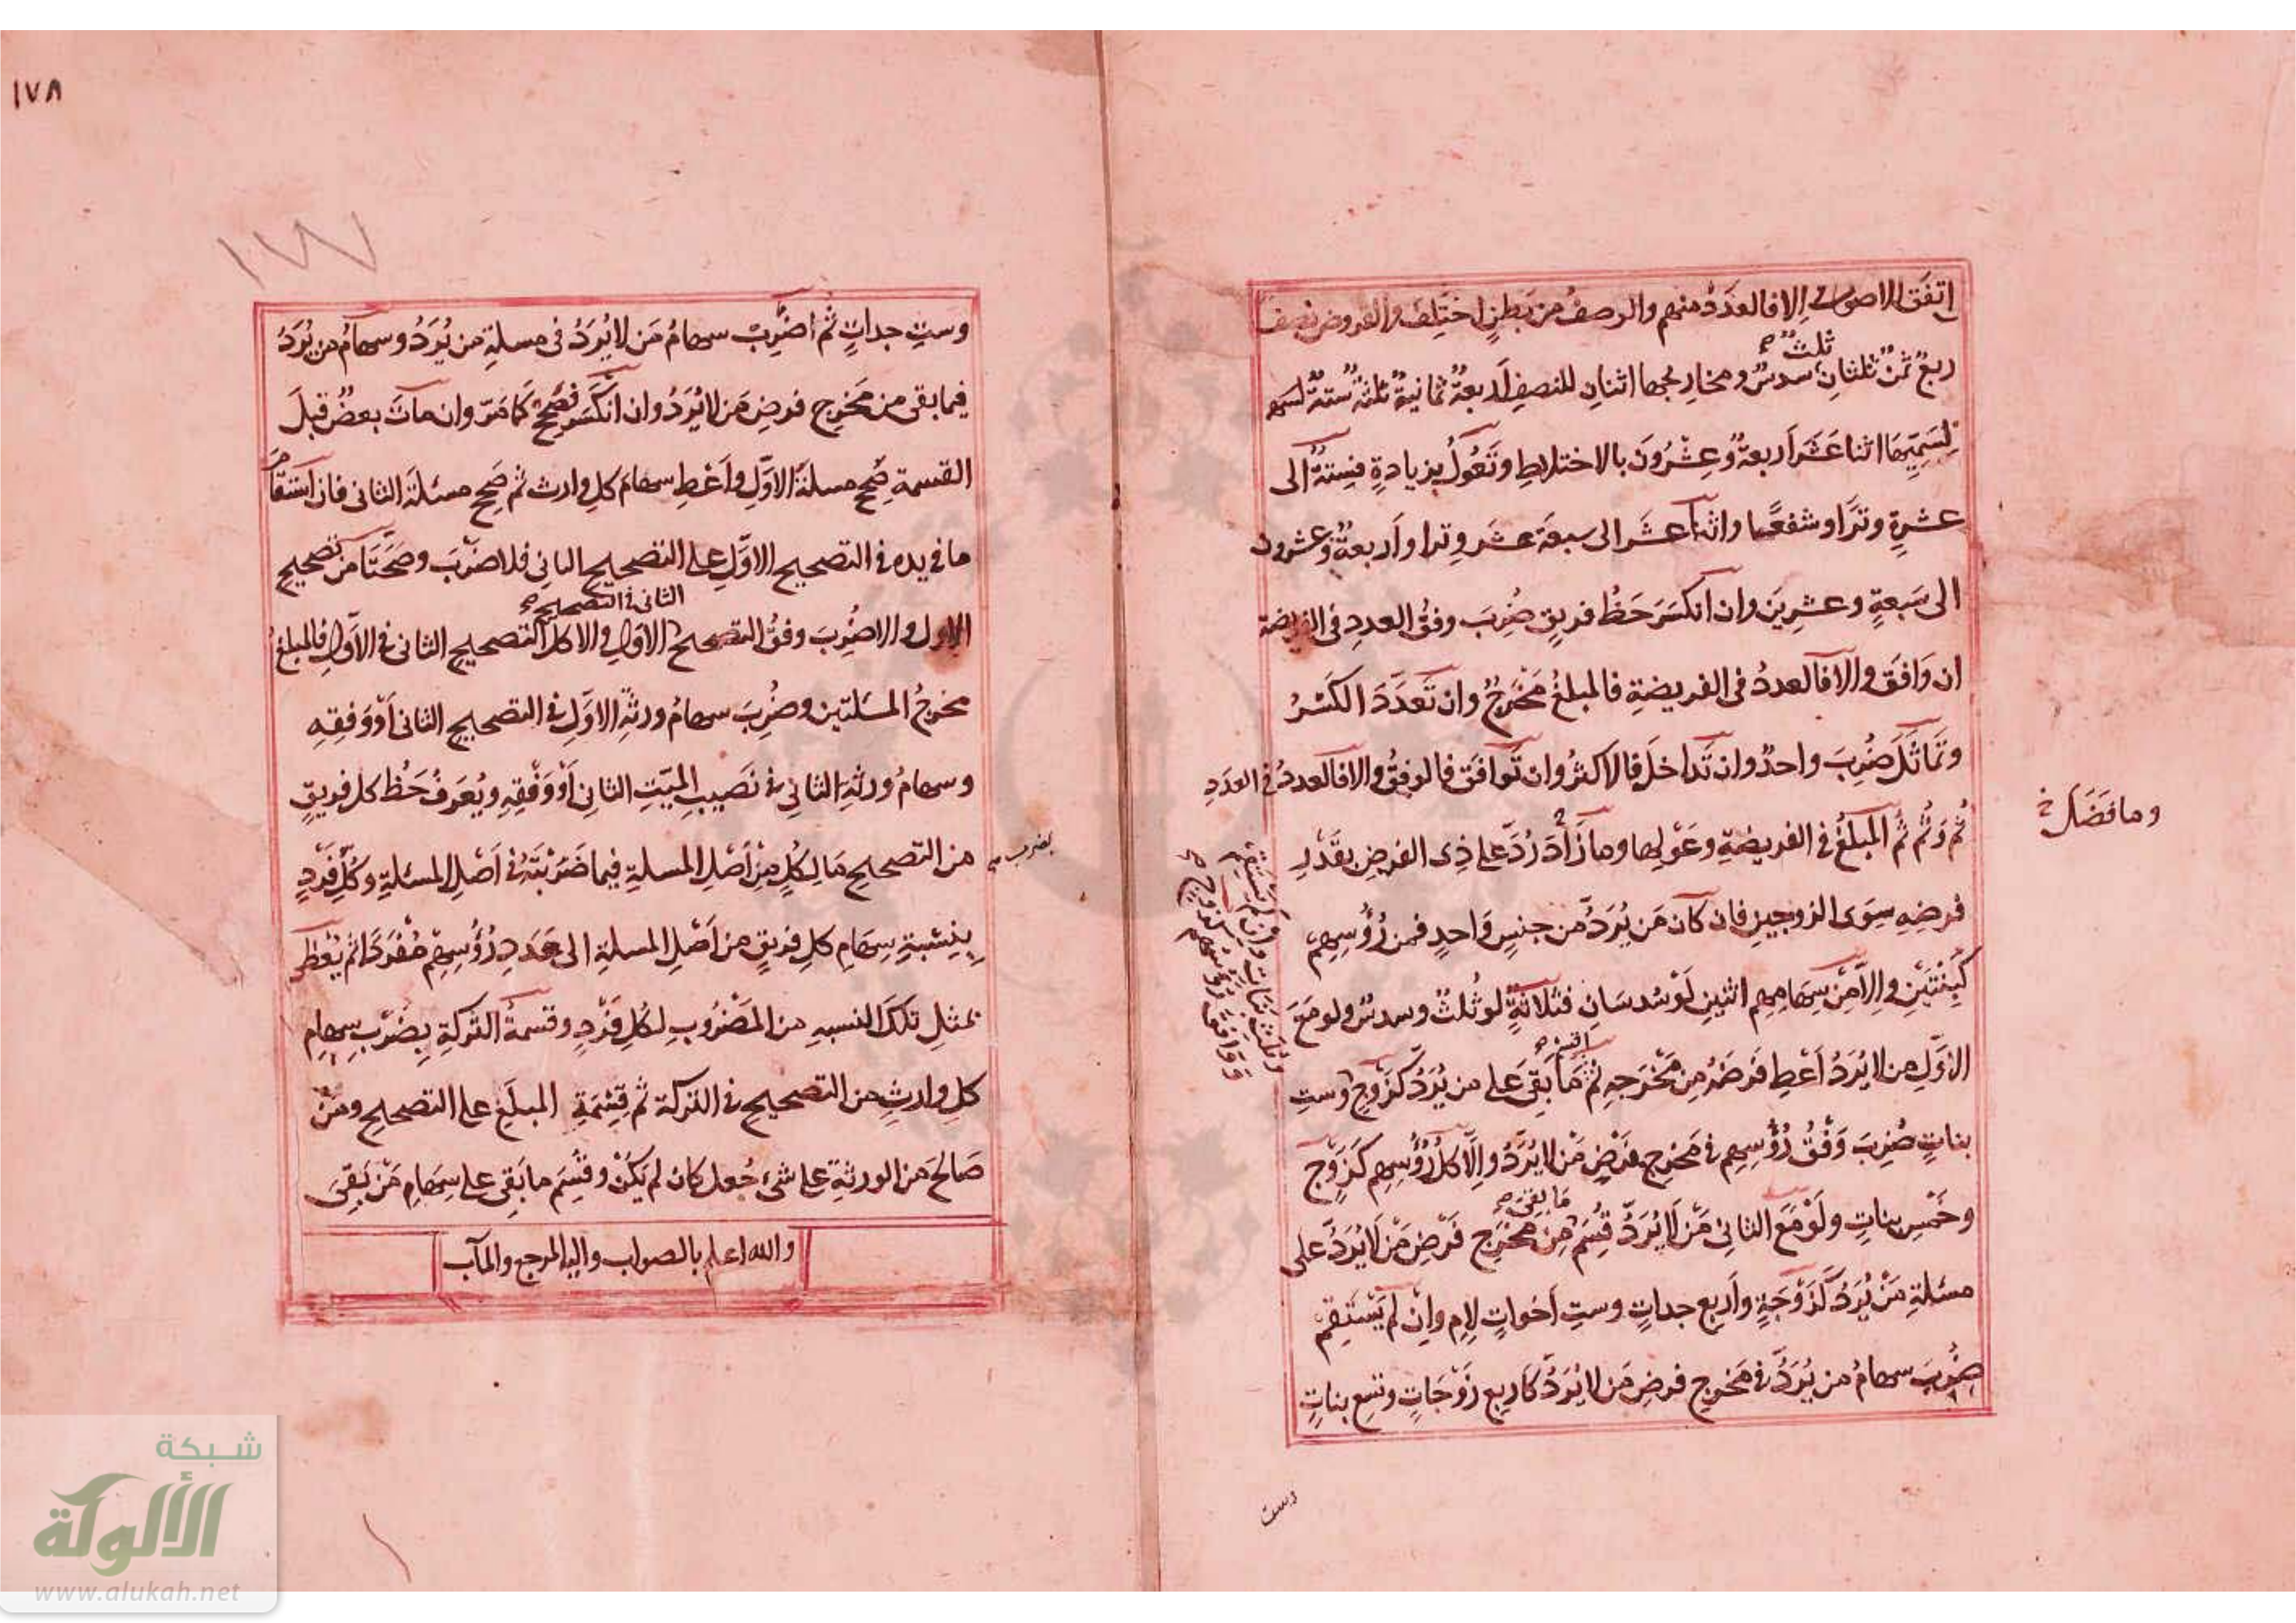 ١٧٨
١٧٧
اتفق الاصول والا فالعدد منهم والوصف من بطن اختلف والفروض نصف
ربع ثمن ثلثان ثلث سدس ومخارجها اثنان للنصف اربعة ثمانية ثلثة ستة لسمـ
لسميها اثنا عشر اربعة وعشرون بالاختلاط وتعول بزيادة فستة الى
عشرة وترا وشفعا واثنا عشر الى سبعة عشر وترا واربعة وعشرون
الى سبعة وعشرين وان انكسر حظ فريق ضرب وفق العدد في الفريضة
ان وافق والا فالعدد فى الفريضة فالمبلغ مخرج وان تعدد الكسر
وتماثل ضرب واحد وان تداخل فالاكثر وان توافق فالوفق والا فالعدد في العدد
ثم وثم ثم المبلغ في الفريضة وعولها وما زاد رُدَّ على ذى الفرض بقدر
وما فضل خ
فرضه سوى الزوجين فان كان من يُرَدُّ من جنس واحد فمن رؤسهم
كبنتين والا من سهامهم اثنين لو سدسان فثلاثة لو ثلث وسدس ولو مع
الاول من لا يرد اعط فرضه من مخرجه ثم اقسم ما بقى على من يرد كزوج وست
وثلث بنات وان لم يستقم
فان وافق رؤسهم كزوج
بنات ضرب وفق رؤسهم في مخرج فرض من لا يرد والا كل رؤسهم كزوج
وخمس بنات ولو مع الثانى من لا يرد قسم ما بقى من مخرج فرض من لا يرد على
مسئلة من يرد كزوجة واربع جدات وست اخوات لام وان لم يستقم
ضرب سهام من يرد في مخرج فرض من لا يرد كاربع زوجات وتسع بنات
وست
وست جدات ثم اضرب سهام من لا يرد فى مسلة من يرد وسهام من يرد
فيما بقى من مخرج فرض من لا يرد وان انكسر فصحح كما مر وان مات بعض قبل
القسمة صحح مسلة الاول واعط سهام كل وارث ثم صحح مسئلة الثانى فان استقام
ما في يده في التصحيح الاول على التصحيح الثانى فلا ضرب وصحتا من تصحيح
الاول والا ضرب وفق التصحيح الثانى في التصحيح الاول والا كل التصحيح الثانى في الاول فالمبلغ
مخرج المسلتين وضرب سهام ورثة الاول في التصحيح الثانى او وفقه
وسهام ورثة الثانى في نصيب الميت الثانى او وفقه ويعرف حظ كل فريق
من التصحيح ما لكل من اصل المسلة فيما ضربته في اصل المسئلة وكل فرد
بضرب
بنسبة سهام كل فريق من اصل المسلة الى عدد رؤسهم مفردا ثم يعطى
بمثل تلك النسبه من المضروب لكل فرد وقسمة التركة بضرب سهام
كل وارث من التصحيح في التركة ثم قسمة المبلغ على التصحيح ومن
صالح من الورثة على شئ جعل كان لم يكن وقسم ما بقى على سهام من بقى
والله اعلم بالصواب واليه المرجع والمآب
شبكة
الألوكة
www.alukah.net